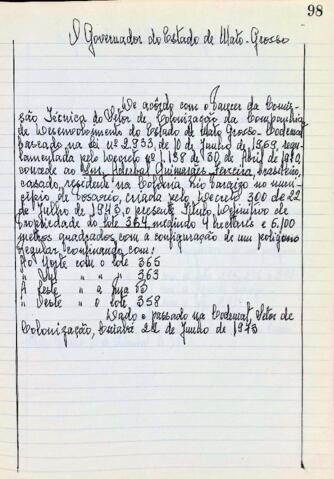 98
O Governador do Estado de Mato-Grosso
De acôrdo com o Parecer da Comis-
são Técnica do Setor de Colonização da Companhia
de Desenvolvimento do Estado de Mato Grosso-Codemat
baseado na lei nº 2.953, de 10 de Junho de 1969, regu-
lamentada pelo Decreto nº 1.138 de 30 de Abril de 1970,
concede ao Snr. Aderbal Guimarães Ferreira, brasileiro,
casado, residente na Colônia Rio no muni-
cípio de Rosario, criada pelo Decreto 300 de 22
de Julho de 1943, o presente Título Definitivo de
Propriedade do lote 364 medindo 4 hectares e 6.100
metros quadrados com a configuração de um polígono
regular confinando com:
Ao Norte com o lote 365
" Sul " " " 363
A Leste " a Rua
" Oeste " o lote 358
Dado e passado na Codemat, Setor de
Colonização, Cuiabá 22 de Junho de 1973